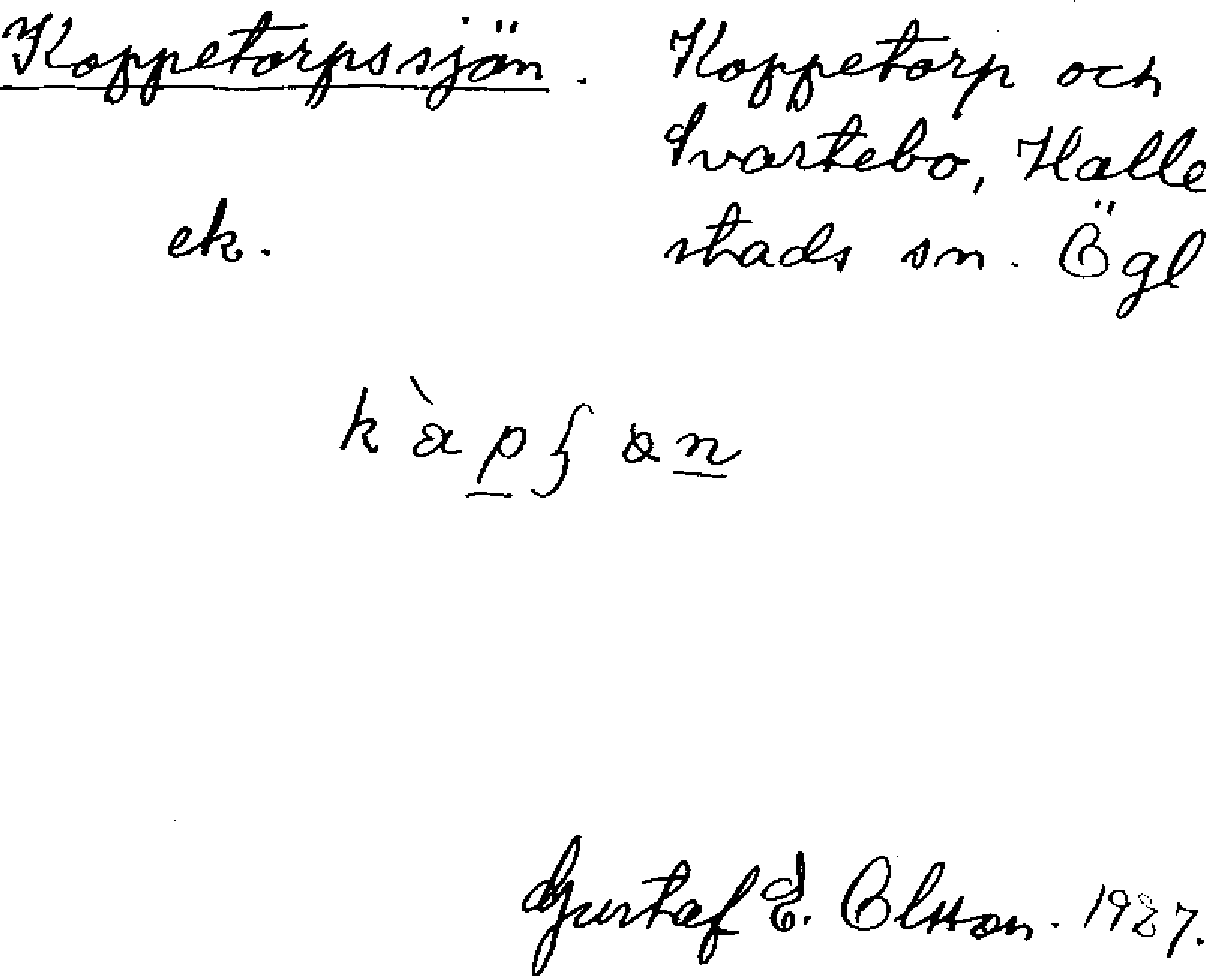 Koppetorpssjön. Koppetorp och
Svartebo, Halle
ek. stads sn. Ögl
Gustaf E. Olsson. 1927.